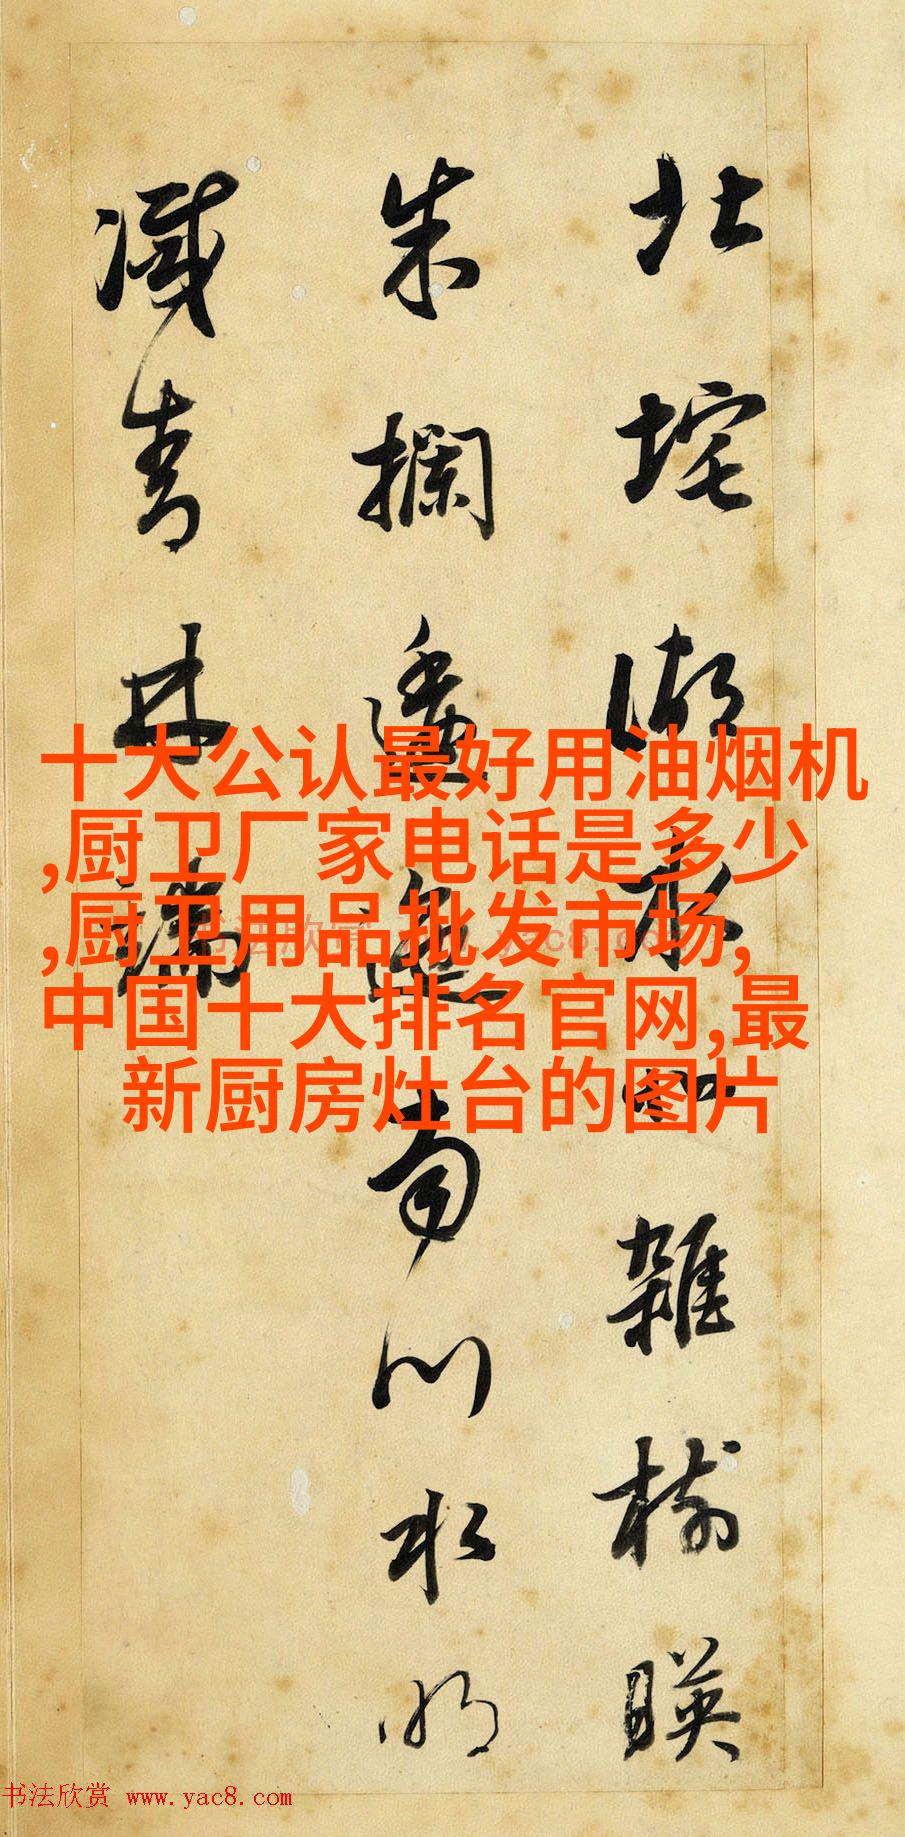 北垞湖水北雜樹暎
朱欄逶迤南川水明
滅青林端
十大公认最好用油烟机
,厨卫厂家电话是多少
,厨卫用品批发市场,
中国十大排名官网,最
新厨房灶台的图片
书法欣赏 www.yac8.com